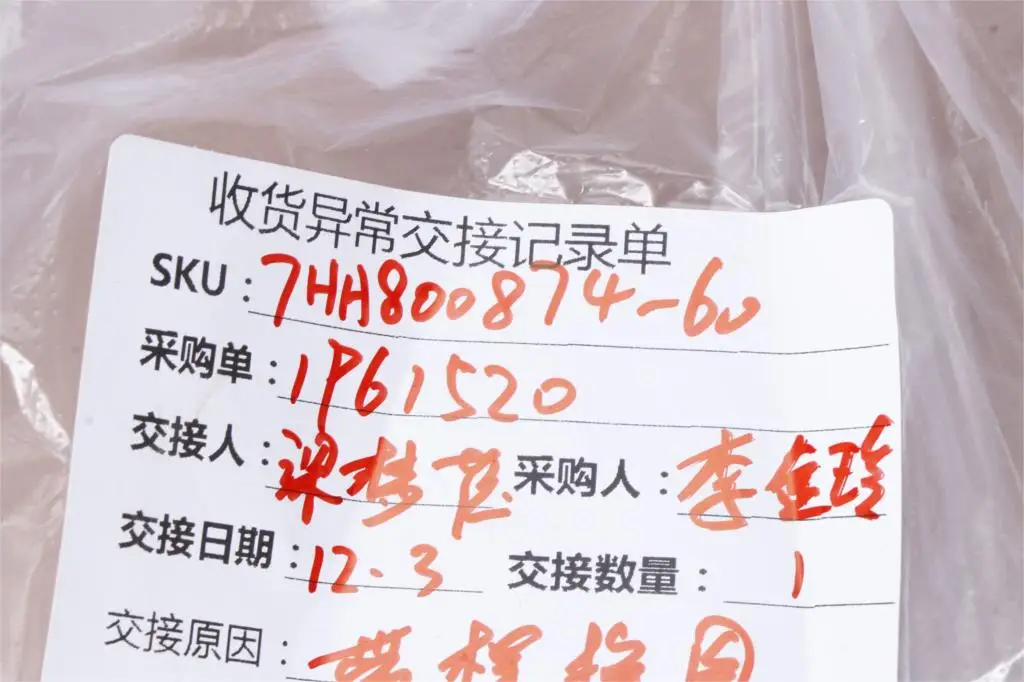 收货异常交接记录单
SKU：7HH800874-60
采购单：1P61520
交接人：梁 采购人：李佳玲
交接日期：12.3 交接数量：1
交接原因：